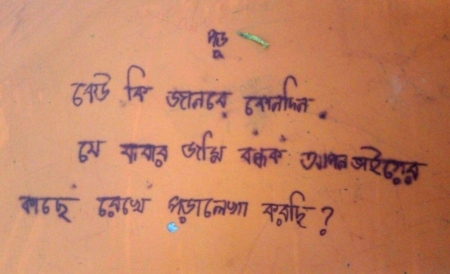 কেউ কি জানবে কোনদিন
যে বাবার জমি বন্ধক আপন ভাইয়ের
কাছে রেখে পড়ালেখা করছি?